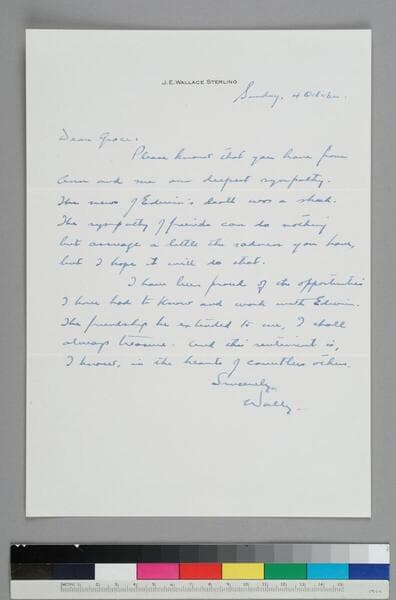 J. E. WALLACE STERLING
Sunday, 4 October.
Dear Grace:
Please know that you have from
Ann and me our deepest sympathy.
The news of Edwin's death was a shock.
The sympathy of friends can do nothing
but assuage a little the sadness you have,
but I hope it will do that.
I have been proud of the opportunities
I have had to know and work with Edwin.
The friendship he extended to me, I shall
always treasure. And this sentiment is,
I know, in the hearts of countless others.
Sincerely,
Wally.